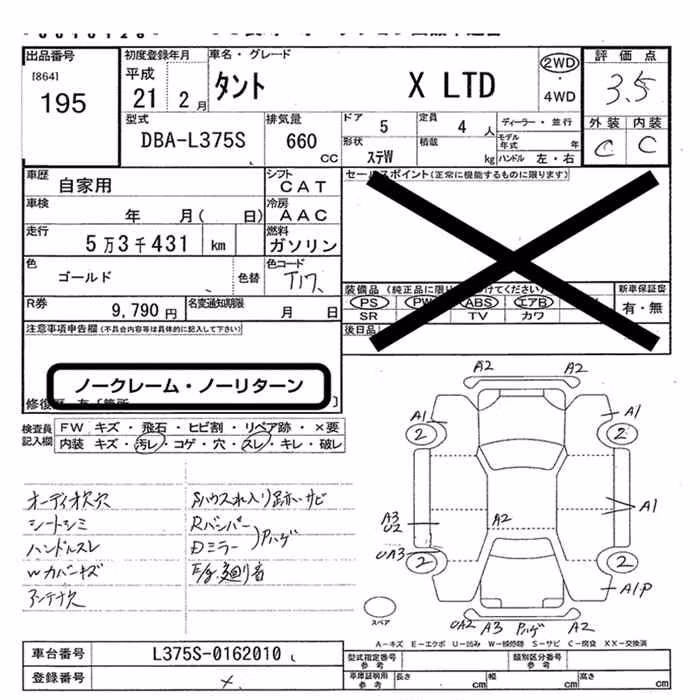 出品番号
[864]
195
初度登録年月
平成
21 2月
車名・グレード
タント X LTD
2WD
・
4WD
評価点
3.5
外装 内装
C C
型式
DBA-L375S
排気量
660
CC
ドア
5
定員
4人
ディーラー・並行
形状
ステW
積載
kg
モデル年式 年
ハンドル 左・右
車歴
自家用
シフト
CAT
車検
年 月( 日)
冷房
AAC
走行
5万3千431 km
燃料
ガソリン
色
ゴールド
色替
色コード
T17
R券
9,790円
名変通知期限
月 日
セールスポイント(正常に機能するものに限ります)
装備品 (純正品に限り けてください)
PS PW ABS エアB
SR TV カワ
新車保証書
有・無
後日品
注意事項申告欄(不具合内容等は具体的に記入して下さい)
ノークレーム・ノーリターン
検査員
記入欄
FW キズ・飛石・ヒビ割・リペア跡・×要
内装 キズ・汚レ・コゲ・穴・スレ・キレ・破レ
オーディオ欠穴
シートシミ
ハンドルスレ
Wカバーキズ
アンテナ欠
Sハウス水入り跡・サビ
Rバンパー
Dミラー
Pハゲ
A2
A1 A1
2 2
A1
A3
U2
A2
UA3
2 2
A1・P
UA2 A3 Pハゲ A2
スペア
A－キズ E－エクボ U－凹み W－補修跡 S－サビ C－腐食 XX－交換済
車台番号
L375S-0162010
登録番号
型式指定番号
参考
類別区分番号
参考
車庫証明用
参考
長さ cm 幅 cm 高さ cm